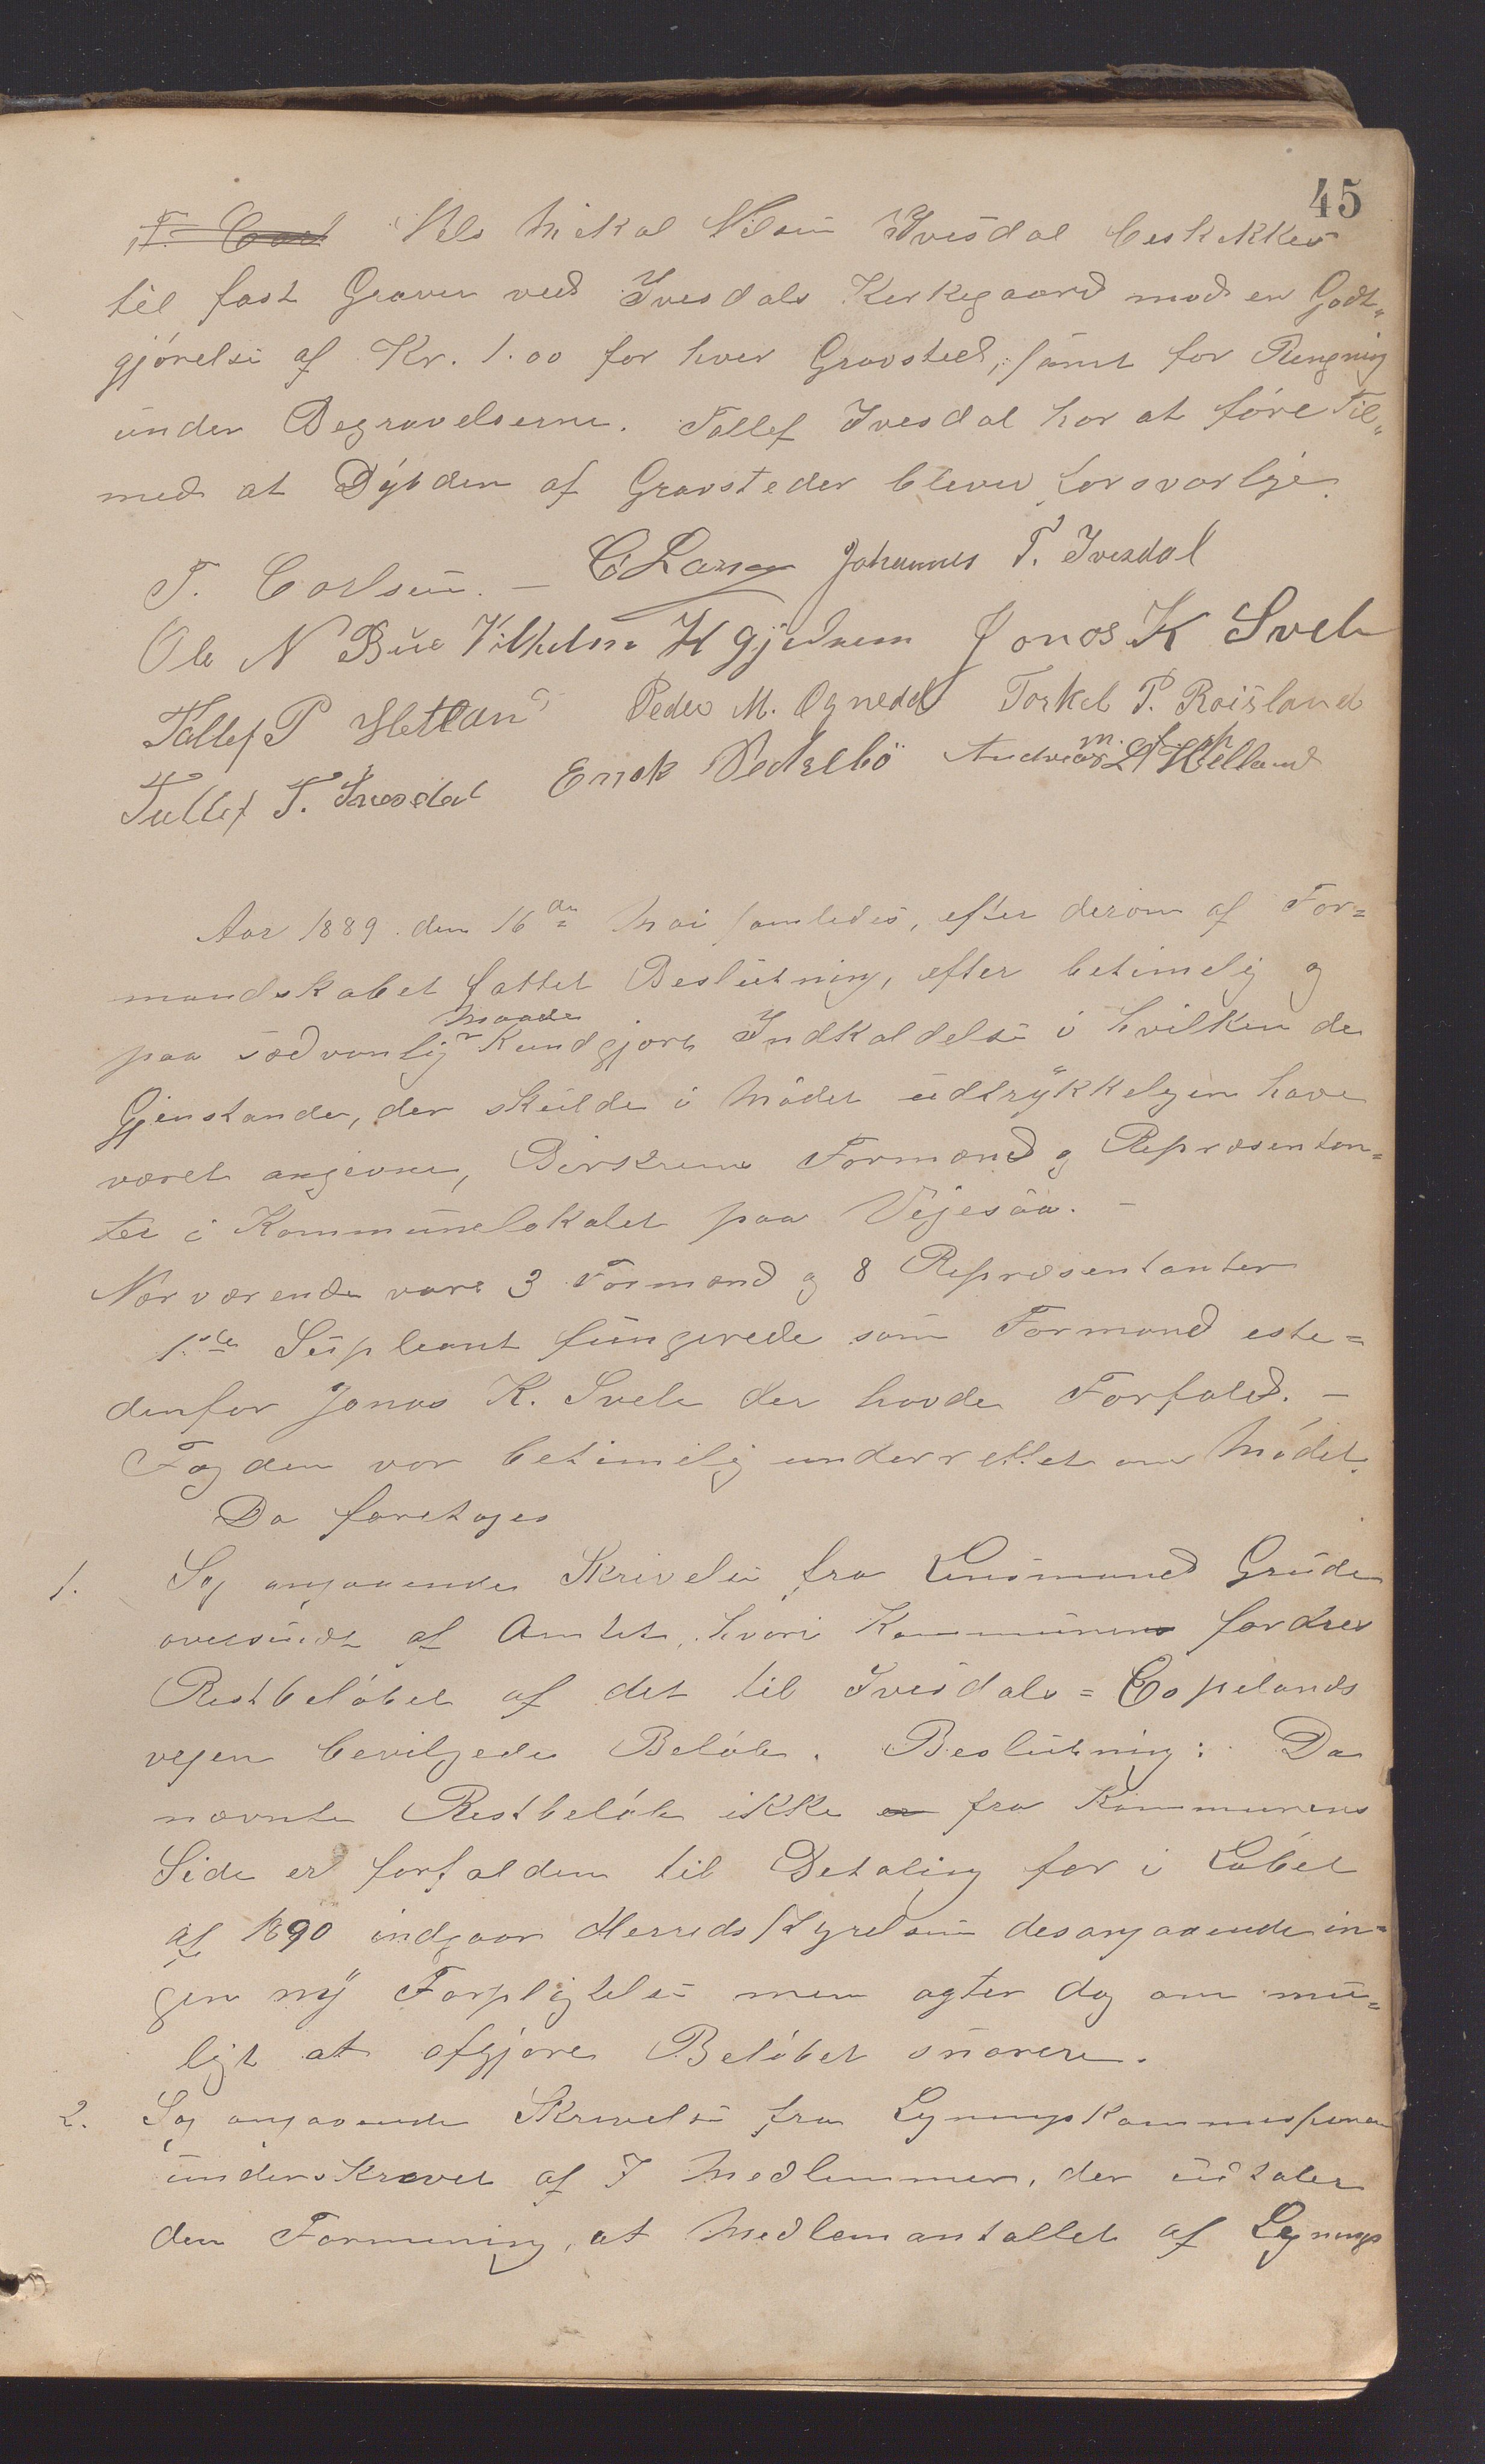 45
T. Carl Nels Mikal Nilsen Ivesdal beskikkes
til fast Graver ved Ivesdals Kirkegaard mod en Godt„
gjörelse af Kr. 1.00 for hver Gravsted, samt for Ringning
under Begravelserne. Tollef Ivesdal har at före Til„
med at Dybden af Gravsteder bliver forsvarlige.
T. Carlsen. – C Larsen Johannes T. Ivesdal
Ole N Bue Vilhelm H Gjedrem Jonas K Svele
Tollef P Hetland Peder M. Ognedal Torkel P. Roisland
Tollef T. Ivesdal Enok Pedersbö Andreas L. Helland
m. f. P.
Aar 1889 den 16de Mai samledes, efter derom af For=
mandskabet fattet Beslutning, efter betimelig og
paa sedvanlig Maade Kundgjort Indkaldelse i hvilken de
Gjenstande, der skulde i Mödet udtrykkeligen have
været angivne, Birkrems Formænd og Repræsentan=
ter i Kommunelokalet paa Vigesaa. –
Nærværende vare 3 Formænd og 8 Repræsentanter
1ste Supleant fungerede som Formand iste=
denfor Jonas K. Svele der havde Forfald. –
Fogden var betimelig underrettet om Mödet.
Da foretoges
1. Sag angaaende Skrivelse fra Lensmand Grude
oversendt af Amtet, hvori Kommunen fordres
Restbelöbet af det til Ivesdals = Espelands
vejen bevilgede Belöb. Beslutning: Da
nævnte Restbelöb ikke er fra Kommunens
Side er forfalden til Betaling för i Löbet
af 1890 indgaar Herredsstyrelsen desangaaende in=
gen ny Forpligtelse men agter dog om mu=
ligt at afgjöre Belöbet snarere.
2. Sag angaaende Skrivelse fra Ligningskommissionen
underskrevet af 7 Medlemmer, der udtaler
den Formening, at Medlemantallet af Lignings